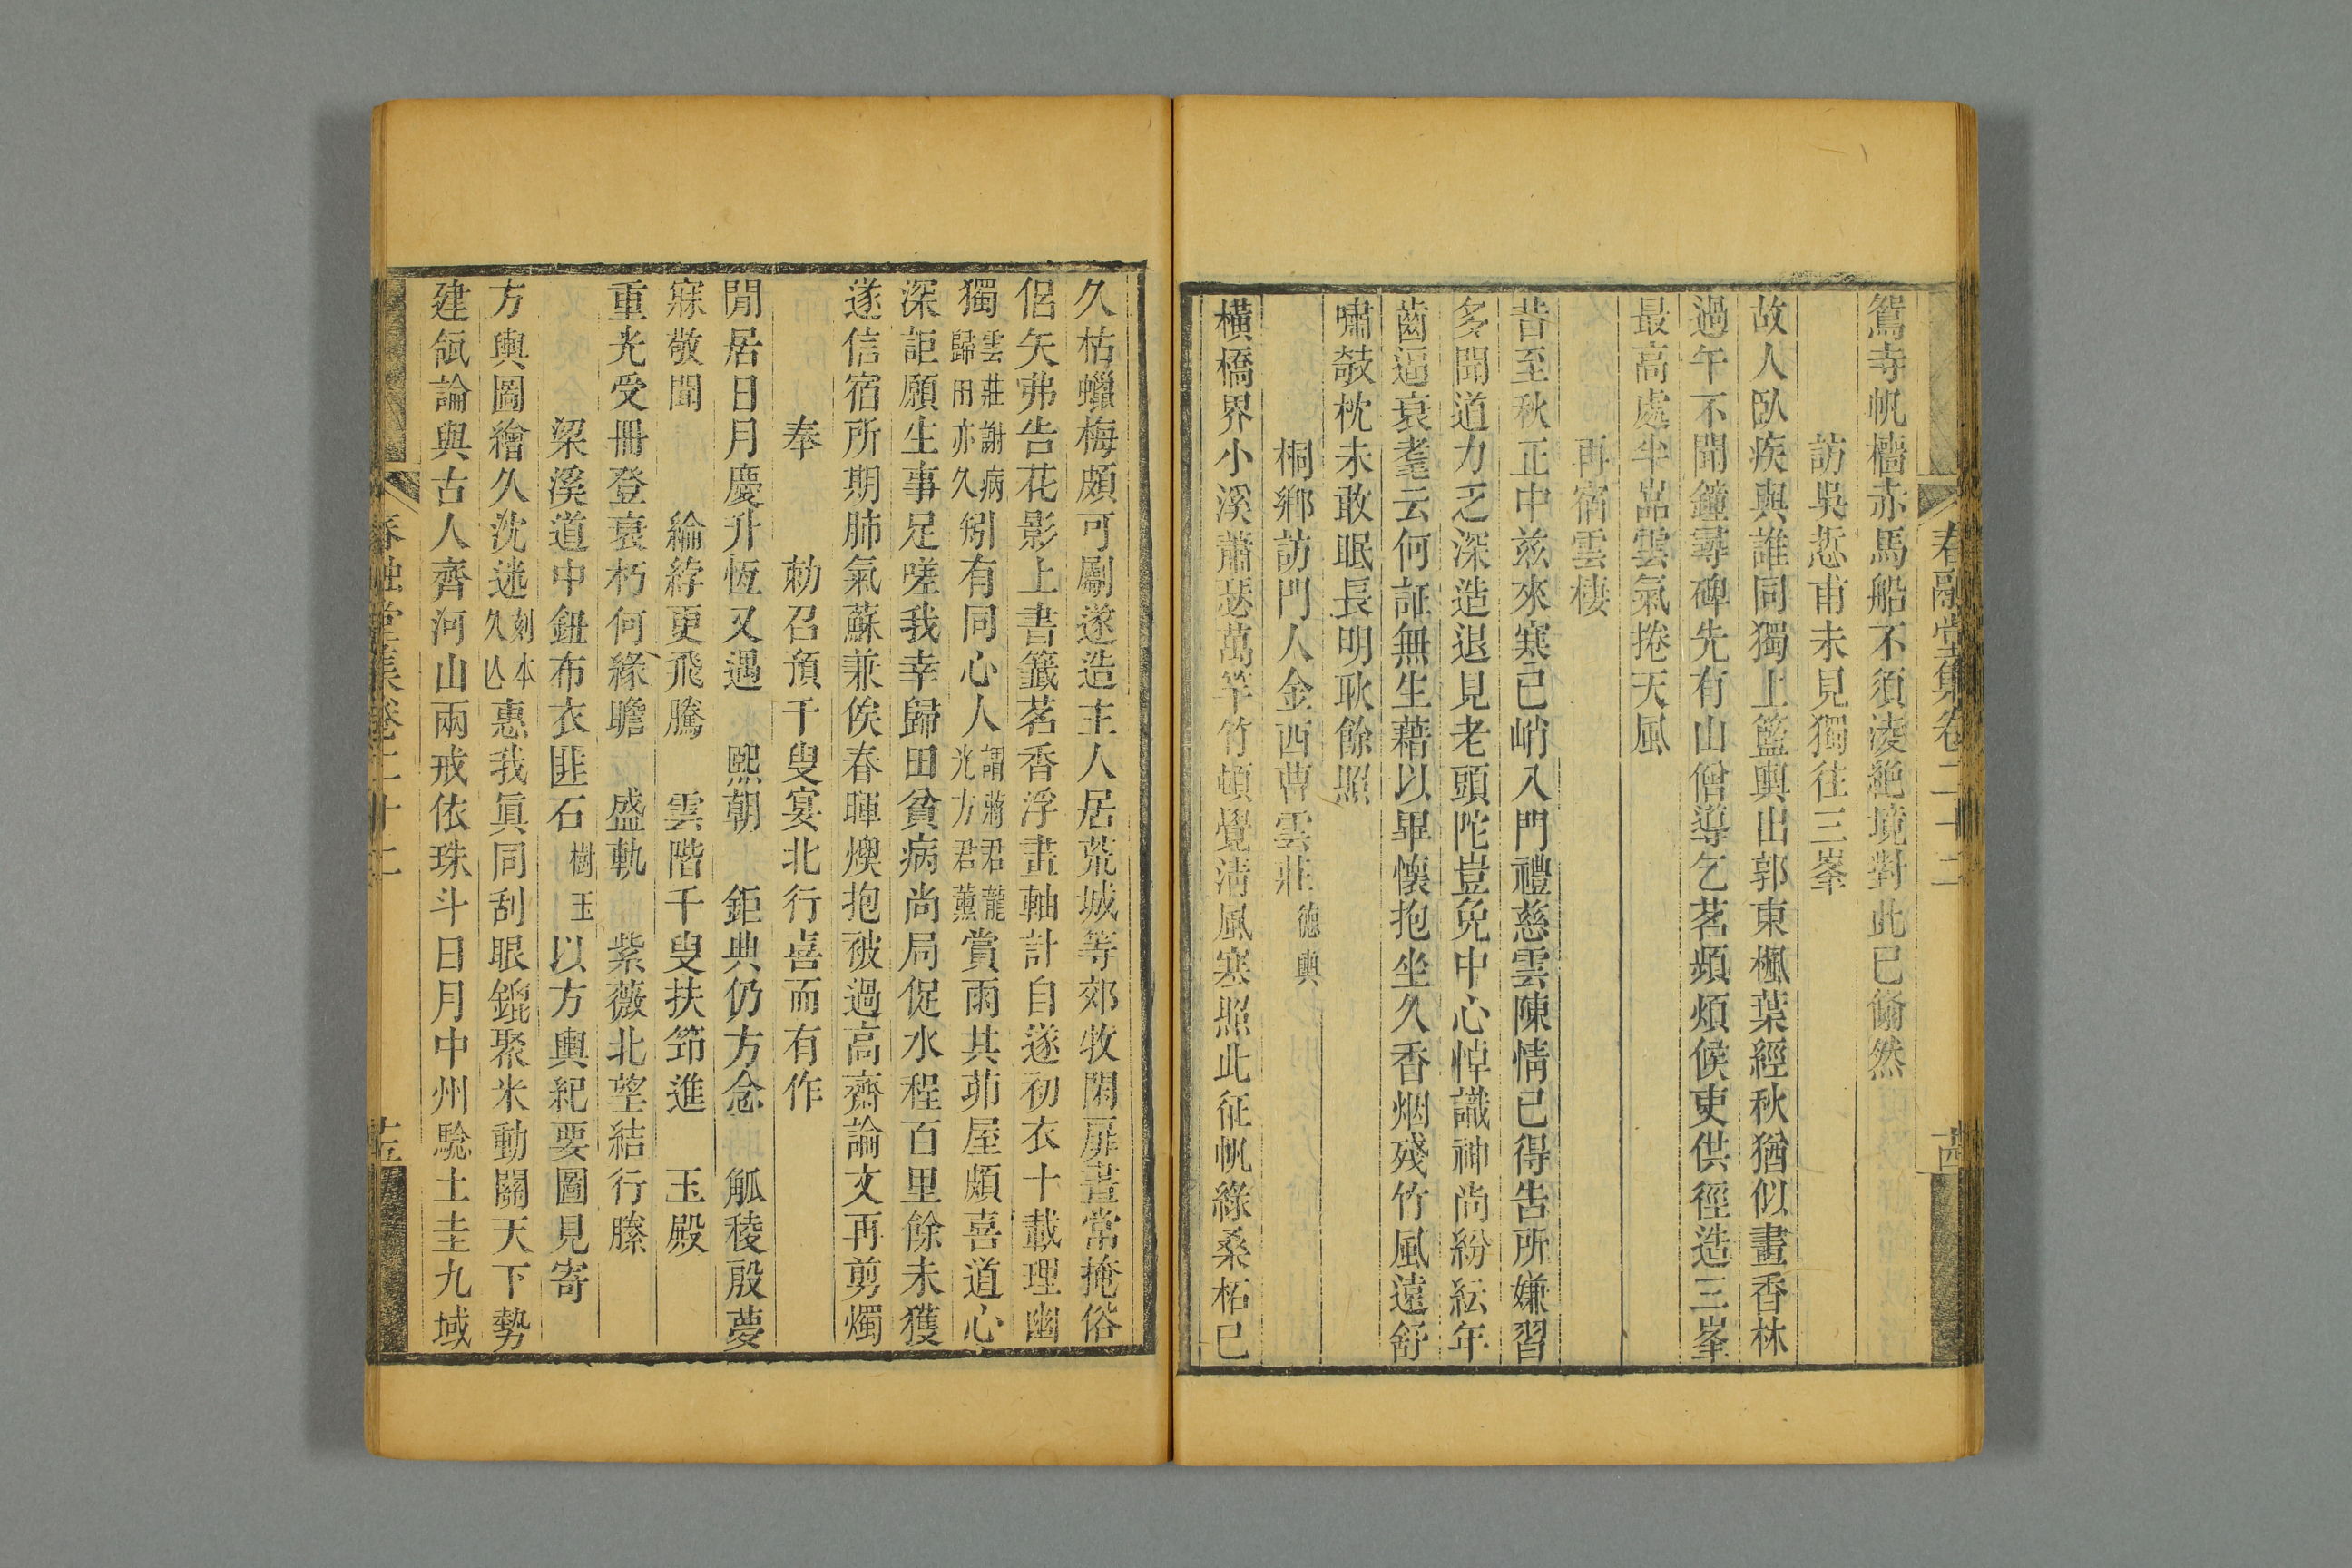 春融堂集卷二十二
十四
鴛寺帆檣赤馬船不須淩絶境對此已翛然
訪吳悊甫未見獨往三峯
故人臥疾與誰同獨上籃輿出郭東楓葉經秋猶似畫香林
過午不聞鐘尋碑先有山僧導乞茗頻煩候吏供徑造三峯
最高處半嵓雲氣捲天風
再宿雲棲
昔至秋正中兹來寒已峭入門禮慈雲陳情已得告所嫌習
多聞道力乏深造退見老頭陀豈免中心悼識神尚紛紜年
齒逼衰耄云何証無生藉以畢懷抱坐久香烟殘竹風遠舒
嘯攲枕未敢眠長明耿餘照
桐鄉訪門人金西曹雲莊德輿
橫橋界小溪蕭瑟萬竿竹頓覺淸風寒照此征帆綠桑柘已
久枯蠟梅頗可劚遂造主人居荒城等郊牧閑扉晝常掩俗
侶矢弗告花影上書籤茗香浮畫軸計自遂初衣十載理幽
獨雲莊謝病歸田亦久矧有同心人謂蔣君龍光方君薰賞雨其茆屋頗喜道心
深詎願生事足嗟我幸歸田貧病尚局促水程百里餘未獲
遂信宿所期肺氣蘇兼俟春暉燠抱被過高齋論文再剪燭
奉 勅召預千叟宴北行喜而有作
閒居日月慶升恆又遇 熙朝 鉅典仍方念 觚稜殷夢
寐敬聞 綸綍更飛騰 雲階千叟扶笻進 玉殿
重光受冊登衰朽何緣瞻 盛軌 紫薇北望結行縢
梁溪道中鈕布衣匪石樹玉以方輿紀要圖見寄
方輿圖繪久沈迷刻本久亾惠我眞同刮眼鎞聚米動關天下勢
建瓴論與古人齊河山兩戒依珠斗日月中州騐土圭九域
春融堂集卷二十二
十五